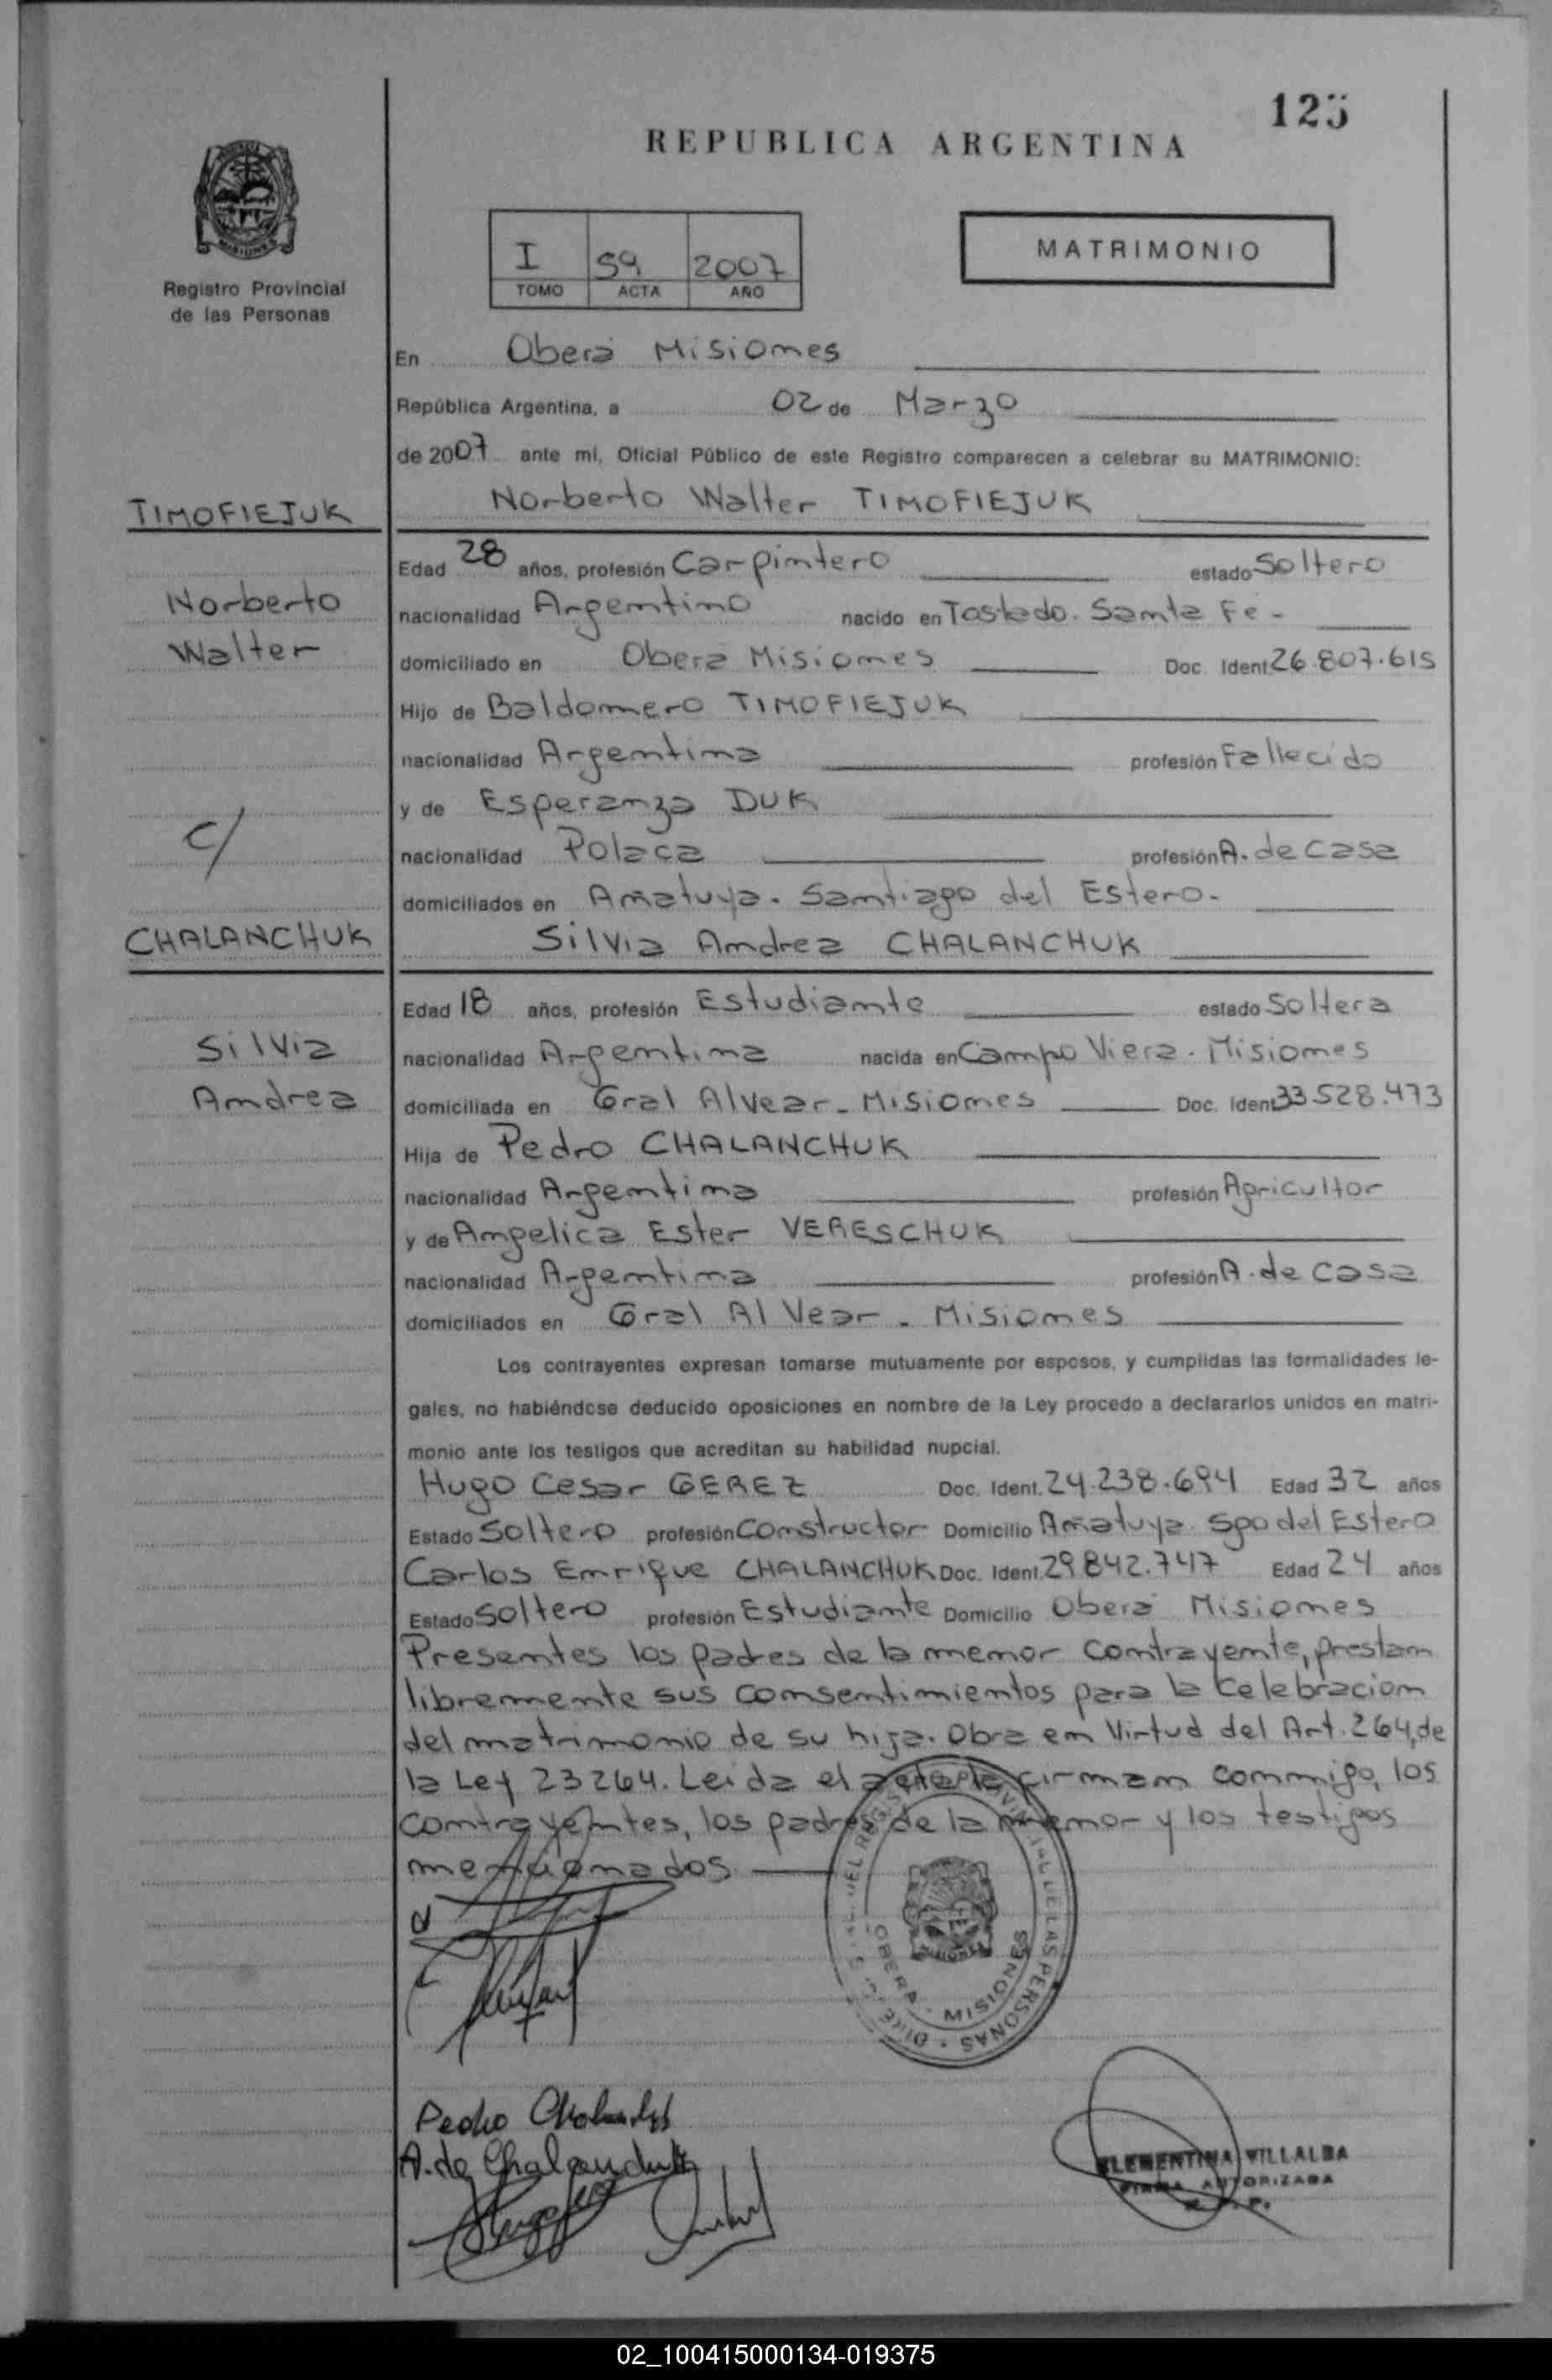 125
REPUBLICA ARGENTINA
MISIONES
Registro Provincial
de las Personas
I 59 2007
TOMO ACTA AÑO
MATRIMONIO
En Oberá Misiones
República Argentina, a 02 de Marzo
de 2007 ante mí, Oficial Público de este Registro comparecen a celebrar su MATRIMONIO:
TIMOFIEJUK
Norberto Walter TIMOFIEJUK
Norberto
Walter
Edad 28 años, profesión Carpintero estado Soltero
nacionalidad Argentino nacido en Tostado. Santa Fe -
domiciliado en Oberá Misiones Doc. Ident. 26.807.615
Hijo de Baldomero TIMOFIEJUK
nacionalidad Argentina profesión Fallecido
y de Esperanza DUK
c/
nacionalidad Polaca profesión A. de Casa
domiciliados en Añatuya. Santiago del Estero.
CHALANCHUK
Silvia Andrea CHALANCHUK
Silvia
Andrea
Edad 18 años, profesión Estudiante estado Soltera
nacionalidad Argentina nacida en Campo Viera. Misiones
domiciliada en Gral Alvear - Misiones Doc. Ident. 33.528.473
Hija de Pedro CHALANCHUK
nacionalidad Argentina profesión Agricultor
y de Angelica Ester VERESCHUK
nacionalidad Argentina profesión A. de Casa
domiciliados en Gral Alvear - Misiones
Los contrayentes expresan tomarse mutuamente por esposos, y cumplidas las formalidades le-
gales, no habiéndose deducido oposiciones en nombre de la Ley procedo a declararlos unidos en matri-
monio ante los testigos que acreditan su habilidad nupcial.
Hugo Cesar GEREZ Doc. Ident. 24.238.694 Edad 32 años
Estado Soltero profesión Constructor Domicilio Añatuya. Sgo del Estero
Carlos Enrique CHALANCHUK Doc. Ident. 29.842.747 Edad 24 años
Estado Soltero profesión Estudiante Domicilio Oberá Misiones
Presentes los padres de la menor contrayente, prestan
libremente sus consentimientos para la celebracion
del matrimonio de su hija. Obra en Virtud del Art. 264, de
la Ley 23264. Leida el acta la firman conmigo, los
contrayentes, los padres de la menor y los testigos
mencionados
DEL REGISTRO PROVINCIAL DE LAS PERSONAS
OBERA - MISIONES
Pedro
A. de Chalanchuk
CLEMENTINA VILLALBA
FIRMA AUTORIZADA
02_100415000134-019375